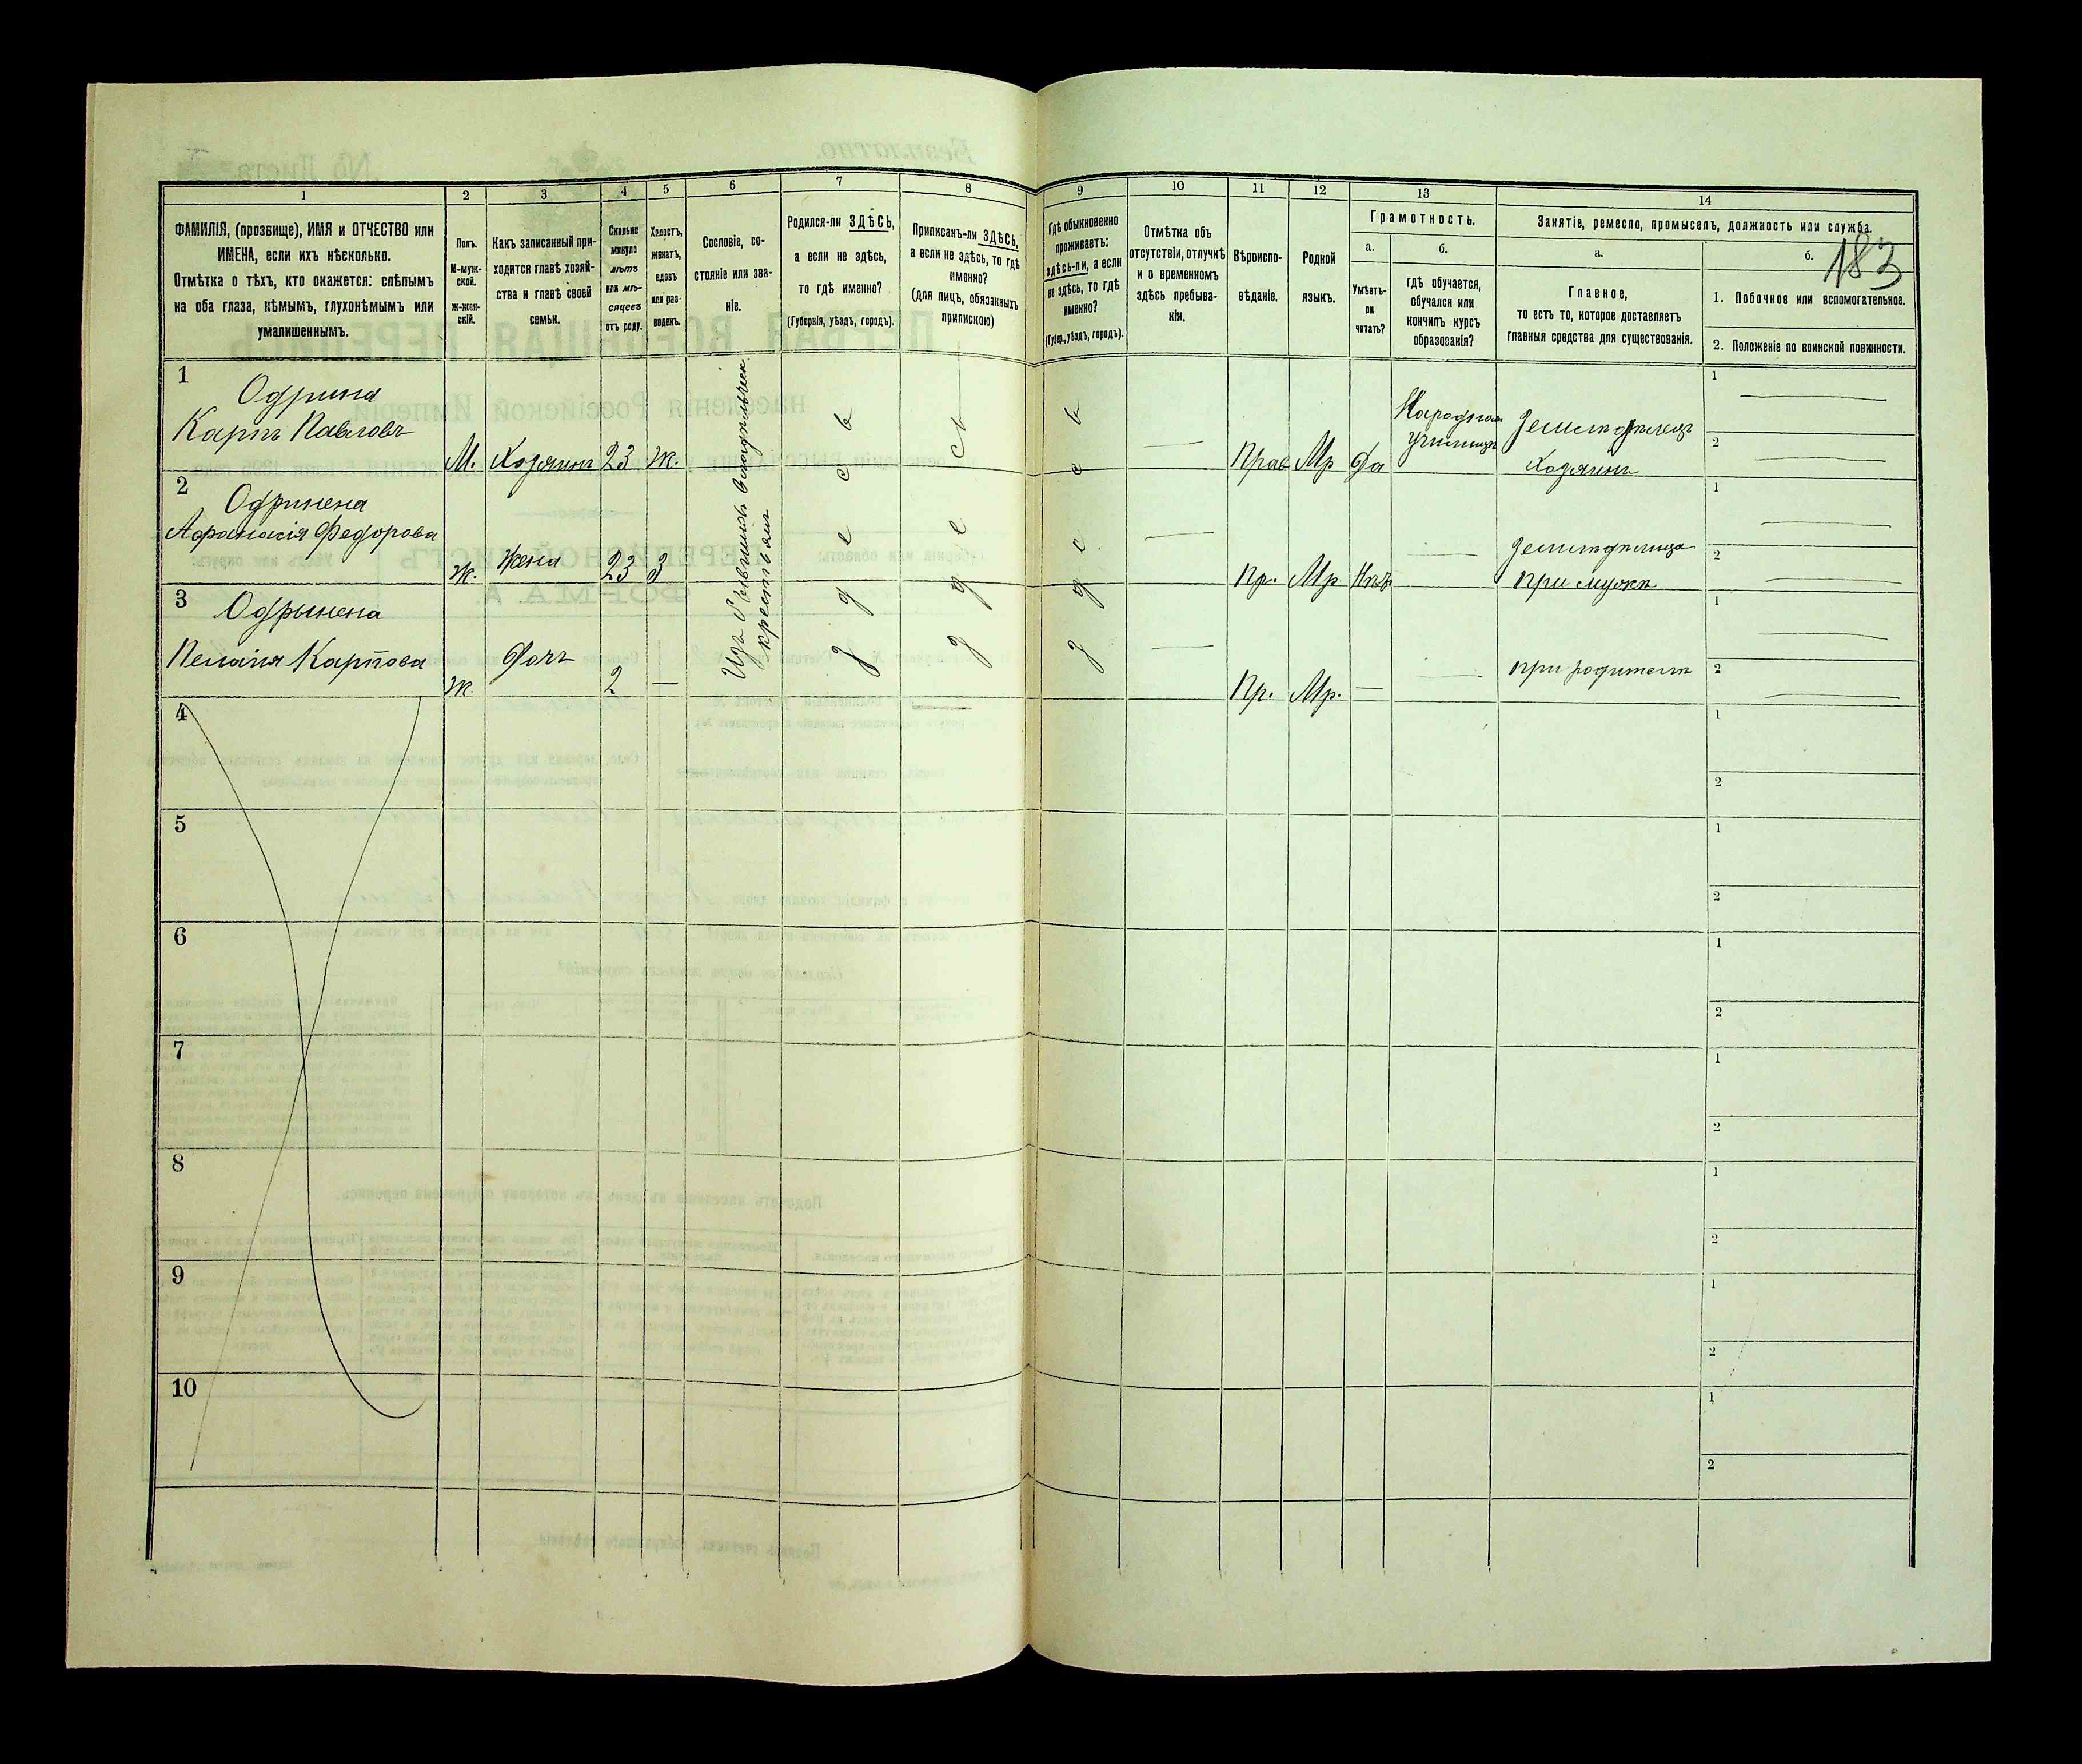 183
1
2
3
4
5
6
7
8
9
10
11
12
13
14
ФАМИЛІЯ, (прозвище), ИМЯ и ОТЧЕСТВО или
ИМЕНА, если ихъ нѣсколько.
Отмѣтка о тѣхъ, кто окажется: слѣпымъ
на оба глаза, нѣмымъ, глухонѣмымъ или
умалишеннымъ.
Полъ.
М-муж-
ской.
Ж-жен-
скій.
Какъ записанный при-
ходится главѣ хозяй-
ства и главѣ своей
семьи.
Сколько
минуло
лѣтъ
или мѣ-
сяцевъ
отъ роду.
Холостъ,
женатъ,
вдовъ
или раз-
веденъ.
Сословіе, со-
стояніе или зва-
ніе.
Родился-ли ЗДѢСЬ,
а если не здѣсь,
то гдѣ именно?
(Губернія, уѣздъ, городъ).
Приписанъ-ли ЗДѢСЬ,
а если не здѣсь, то гдѣ
именно?
(для лицъ, обязанныхъ
припискою)
Гдѣ обыкновенно
проживаетъ:
здѣсь-ли, а если
не здѣсь, то гдѣ
именно?
(Губерн., уѣздъ, городъ).
Отмѣтка объ
отсутствіи, отлучкѣ
и о временномъ
здѣсь пребыва-
ніи.
Вѣроиспо-
вѣданіе.
Родной
языкъ.
Грамотность.
а.
Умѣетъ-
ли
читать?
б.
Гдѣ обучается,
обучался или
кончилъ курсъ
образованія?
Занятіе, ремесло, промыселъ, должность или служба.
а.
Главное,
то есть то, которое доставляетъ
главныя средства для существованія.
б.
1. Побочное или вспомогательное.
2. Положеніе по воинской повинности.
1
Одрина
Карпъ Павловъ
М. Хозяинъ 23 Ж.
Прав Мр Да
Народная
Училищъ
Земледѣлецъ
Хозяинъ
1
2
2
Одринена
Афанасія Федорова
Ж. Жена 23 З
Пр. Мр Нѣтъ
Земледѣлица
при мужѣ
1
2
3
Одрынена
Пелагія Карпова
Ж. Дочь 2 —
Пр. Мр. —
при родителѣ
1
2
Изъ бывшихъ владѣльческ.
крестьянъ
здесь
здесь
здесь
4
1
2
5
1
2
6
1
2
7
1
2
8
1
2
9
1
2
10
1
2